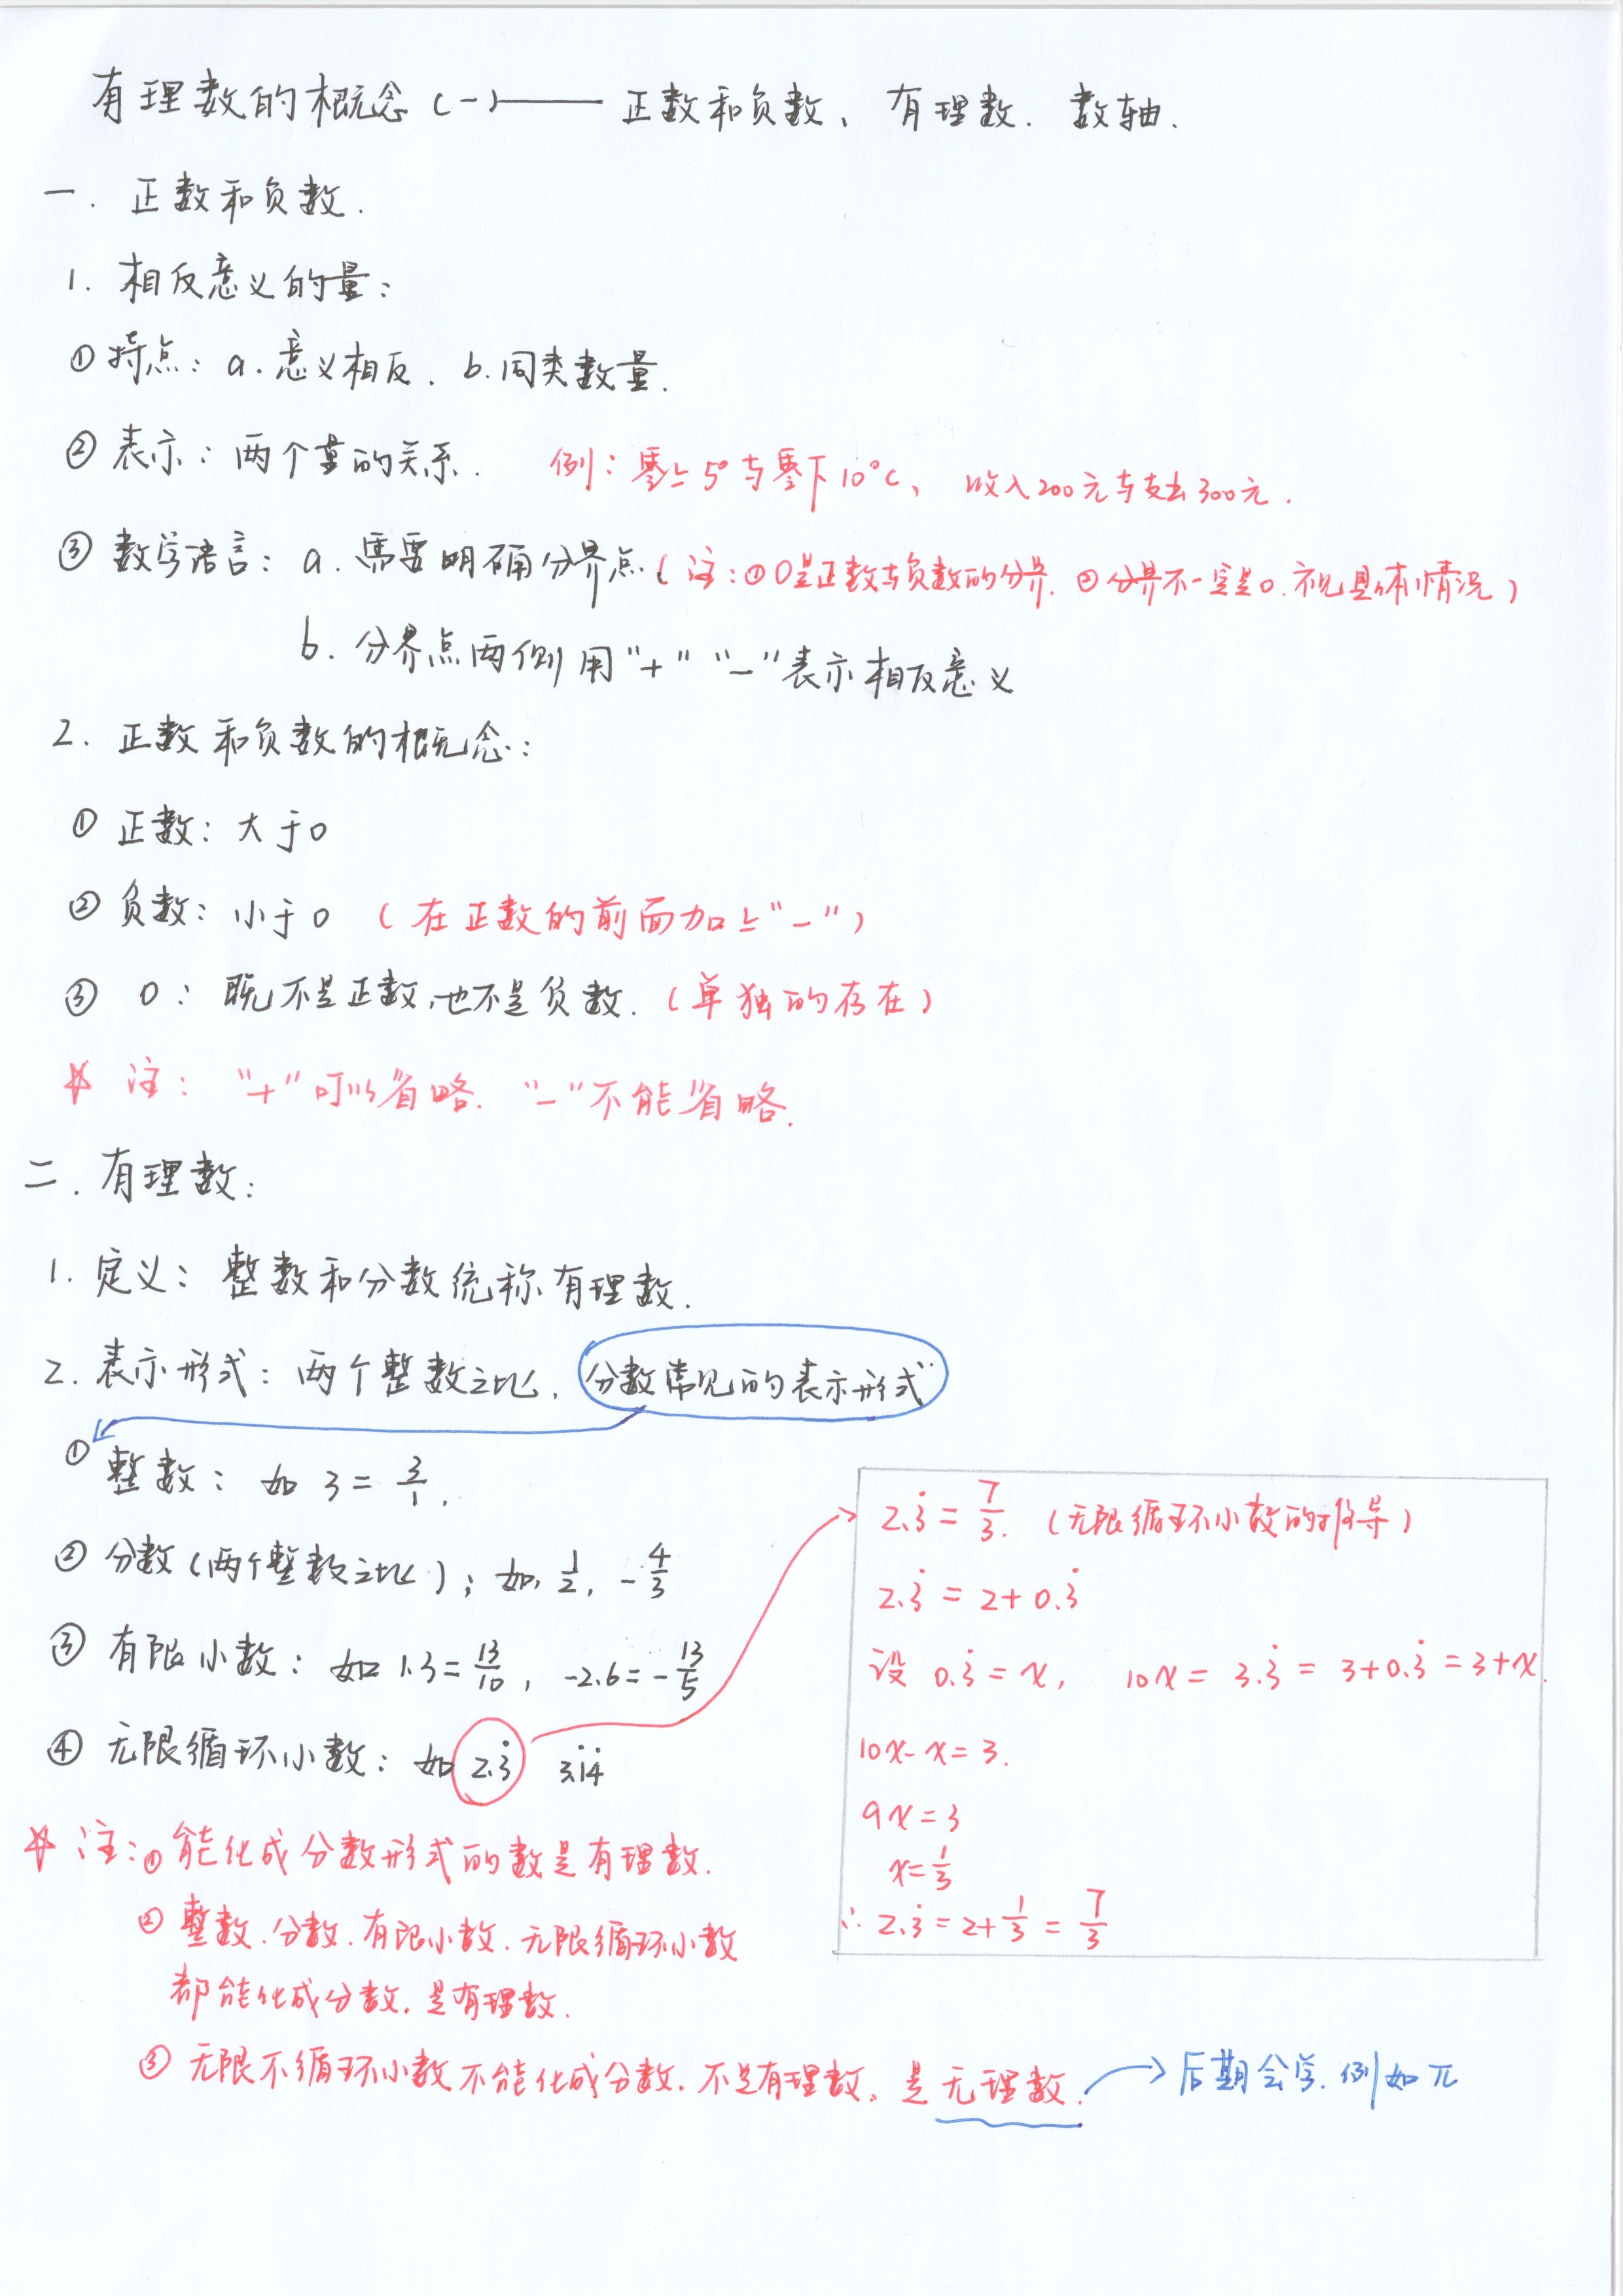 有理数的概念(一)—— 正数和负数、有理数. 数轴.
一. 正数和负数.
1. 相反意义的量:
① 特点: a. 意义相反. b. 同类数量.
② 表示: 两个量的关系. 例: 零上5°与零下10°C、 收入200元与支出300元.
③ 数学语言: a. 需要明确分界点 (注: ①0是正数与负数的分界. ②分界不一定是0. 视具体情况)
b. 分界点两侧用"+" "-"表示相反意义
2. 正数和负数的概念:
① 正数: 大于0
② 负数: 小于0 (在正数的前面加上"-")
③ 0: 既不是正数,也不是负数. (单独的存在)
☆ 注: "+"可以省略. "-"不能省略.
二. 有理数:
1. 定义: 整数和分数统称有理数.
2. 表示形式: 两个整数之比. 分数常见的表示形式
① 整数: 如 3 = 3/1.
② 分数(两个整数之比); 如, 1/2, -4/3
③ 有限小数: 如 1.3 = 13/10, -2.6 = -13/5
④ 无限循环小数: 如 2.3̇ 3.1̇4̇
2.3̇ = 7/3. (无限循环小数的推导)
2.3̇ = 2 + 0.3̇
设 0.3̇ = x, 10x = 3.3̇ = 3 + 0.3̇ = 3 + x.
10x - x = 3.
9x = 3
x = 1/3
∴ 2.3̇ = 2 + 1/3 = 7/3
☆ 注: ① 能化成分数形式的数是有理数.
② 整数.分数.有限小数.无限循环小数
都能化成分数. 是有理数.
③ 无限不循环小数不能化成分数. 不是有理数. 是无理数. 后期会学. 例如π